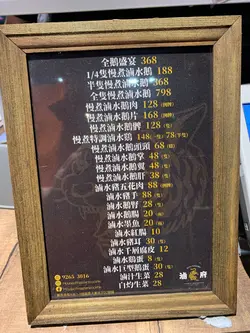 全鵝盛宴 368
1/4隻慢煮滷水鵝 188
半隻慢煮滷水鵝 368
全隻慢煮滷水鵝 798
慢煮滷水鵝肉 128
慢煮滷水鵝片 168
慢煮滷水鵝髀 128
慢煮特調滷水鵝 148 78
慢煮滷水鵝頭頸 68
慢煮滷水鵝掌 48
慢煮滷水鵝翼 48
慢煮滷水鵝肝 38
滷水豬五花肉 88
滷水豬手 88
滷水鵝腎 28
滷水鵝腸 20
滷水墨魚 20
滷水紅腸 10
滷水豬耳 30
滷水千層腐皮 12
滷水鵝蛋 8
滷水巨型鵝蛋 30
滷汁生菜 28
白灼生菜 28
9265 3016
滷府